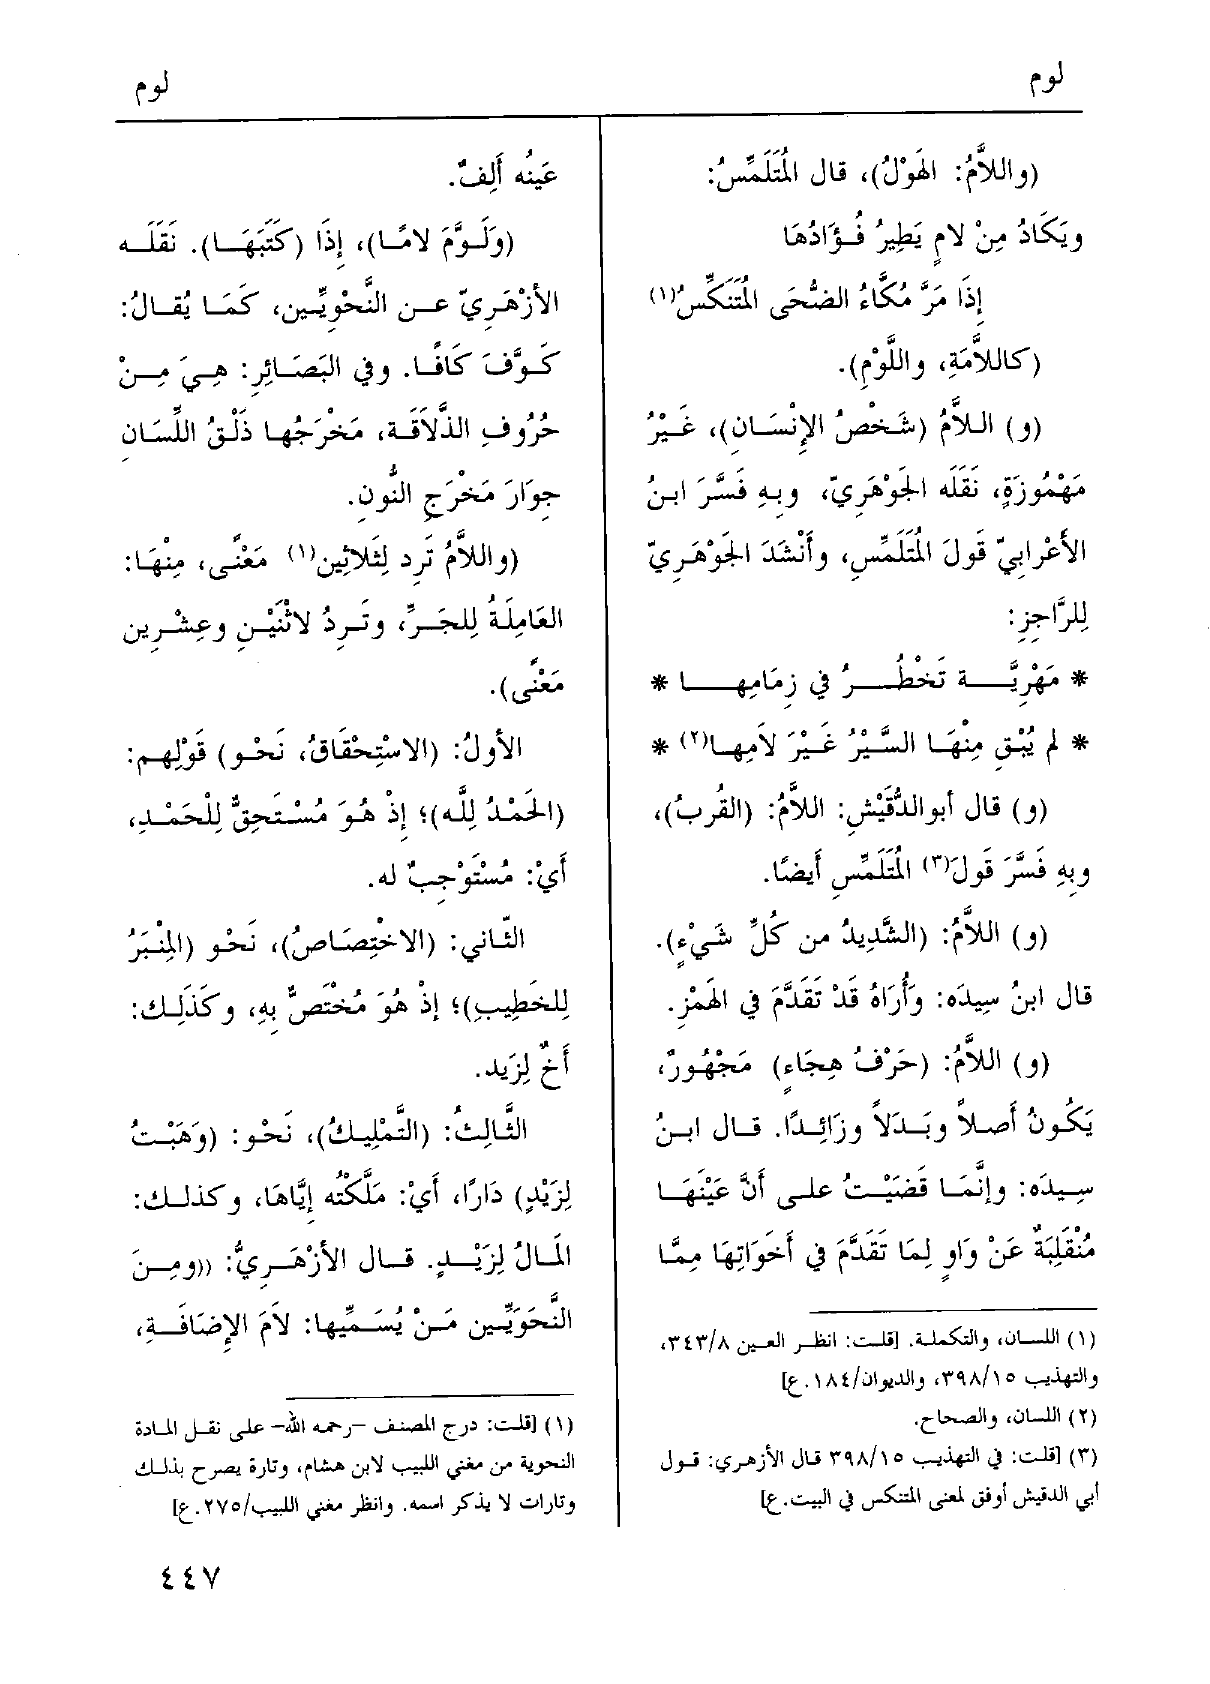 لوم
لوم
(واللاَّمُ: الهَوْلُ)، قال المُتَلَمِّسُ:
ويَكَادُ مِنْ لامٍ يَطِيرُ فُؤَادُهَا
إِذَا مَرَّ مُكَّاءُ الضُّحَى المُتَنَكِّسُ(١)
(كاللاَّمَةِ، واللَّوْمِ).
(و) اللاَّمُ (شَخْصُ الإنْسَانِ)، غَيْرُ
مَهْمُوزَةٍ، نَقَلَه الجَوْهَرِيّ، وبِهِ فَسَّرَ ابنُ
الأَعْرابيّ قَولَ المُتَلَمِّسِ، وأَنْشَدَ الجَوْهَرِيّ
لِلرَّاجِزِ:
* مَهْرِيَّـــة تَخْطُــرُ في زِمَامِهـــا *
* لم يُبْقِ مِنْهَا السَّيْرُ غَيْرَ لاَمِها(٢) *
(و) قال أبوالدُّقَيْشِ: اللاَّمُ: (القُربُ)،
وبِهِ فَسَّرَ قَولَ(٣) المُتَلَمِّسِ أَيضًا.
(و) اللاَّمُ: (الشَّدِيدُ من كُلِّ شَيْءٍ).
قال ابنُ سِيدَه: وَأُرَاهُ قَدْ تَقَدَّمَ في الهَمْزِ.
(و) اللاَّمُ: (حَرْفُ هِجَاءٍ) مَجْهُورٌ،
يَكُونُ أَصلاً وبَدَلاً وزَائِدًا. قال ابنُ
سِيدَه: وإنَّمَا قَضَيْتُ على أَنَّ عَيْنَهَا
مُنْقَلِبَةٌ عَنْ وَاوٍ لِمَا تَقَدَّمَ في أَخَوَاتِهَا مِمَّا
(١) اللسان، والتكملة. [قلت: انظر العين ٣٤٣/٨،
والتهذيب ٣٩٨/١٥، والديوان/١٨٤.ع]
(٢) اللسان، والصحاح.
(٣) [قلت: في التهذيب ٣٩٨/١٥ قال الأزهري: قول
أبي الدقيش أوفق لمعنى المتنكس في البيت.ع]
عَينُه أَلِفٌ.
(ولَوَّمَ لامًا)، إِذَا (كَتَبَهَا). نَقَلَه
الأَزْهَرِيّ عن النَّحْوِيِّين، كَمَا يُقالُ:
كَوَّفَ كَافًا. وفي البَصَائِرِ: هِيَ مِنْ
حُرُوفِ الذَّلاَقَة، مَخْرَجُها ذَلْقُ اللِّسَانِ
جِوارَ مَخْرَجِ النُّونِ.
(واللاَّمُ تَرِد لِثَلاثِين(١) مَعْنًى، مِنْهَا:
العَامِلَةُ لِلجَرِّ، وتَرِدُ لاثْنَيْنِ وعِشْرِين
مَعْنًى).
الأولُ: (الاسْتِحْقَاقُ، نَحْو) قَولِهم:
(الحَمْدُ لِلَّه)؛ إِذْ هُوَ مُسْتَحِقٌّ لِلْحَمْدِ،
أَيْ: مُسْتَوْجِبٌ له.
الثّاني: (الاخْتِصَاصُ)، نَحْو (المِنْبَرُ
لِلخَطِيبِ)؛ إِذْ هُوَ مُخْتَصٌّ بِهِ، وكَذَلِك:
أَخٌ لِزَيد.
الثَّالِثُ: (التَّمْلِيكُ)، نَحْو: (وَهَبْتُ
لِزَيْدٍ) دَارًا، أَيْ: مَلَّكْتُه إيَّاهَا، وكذلك:
المَالُ لِزَيْدٍ. قال الأَزْهَرِيُّ: ((ومِنَ
النَّحَوِيِّين مَنْ يُسَمِّيها: لاَمَ الإضَافَةِ،
(١) [قلت: درج المصنف -رحمه الله- على نقل المادة
النحوية من مغني اللبيب لابن هشام، وتارة يصرح بذلك
وتارات لا يذكر اسمه. وانظر مغني اللبيب/٢٧٥.ع]
٤٤٧